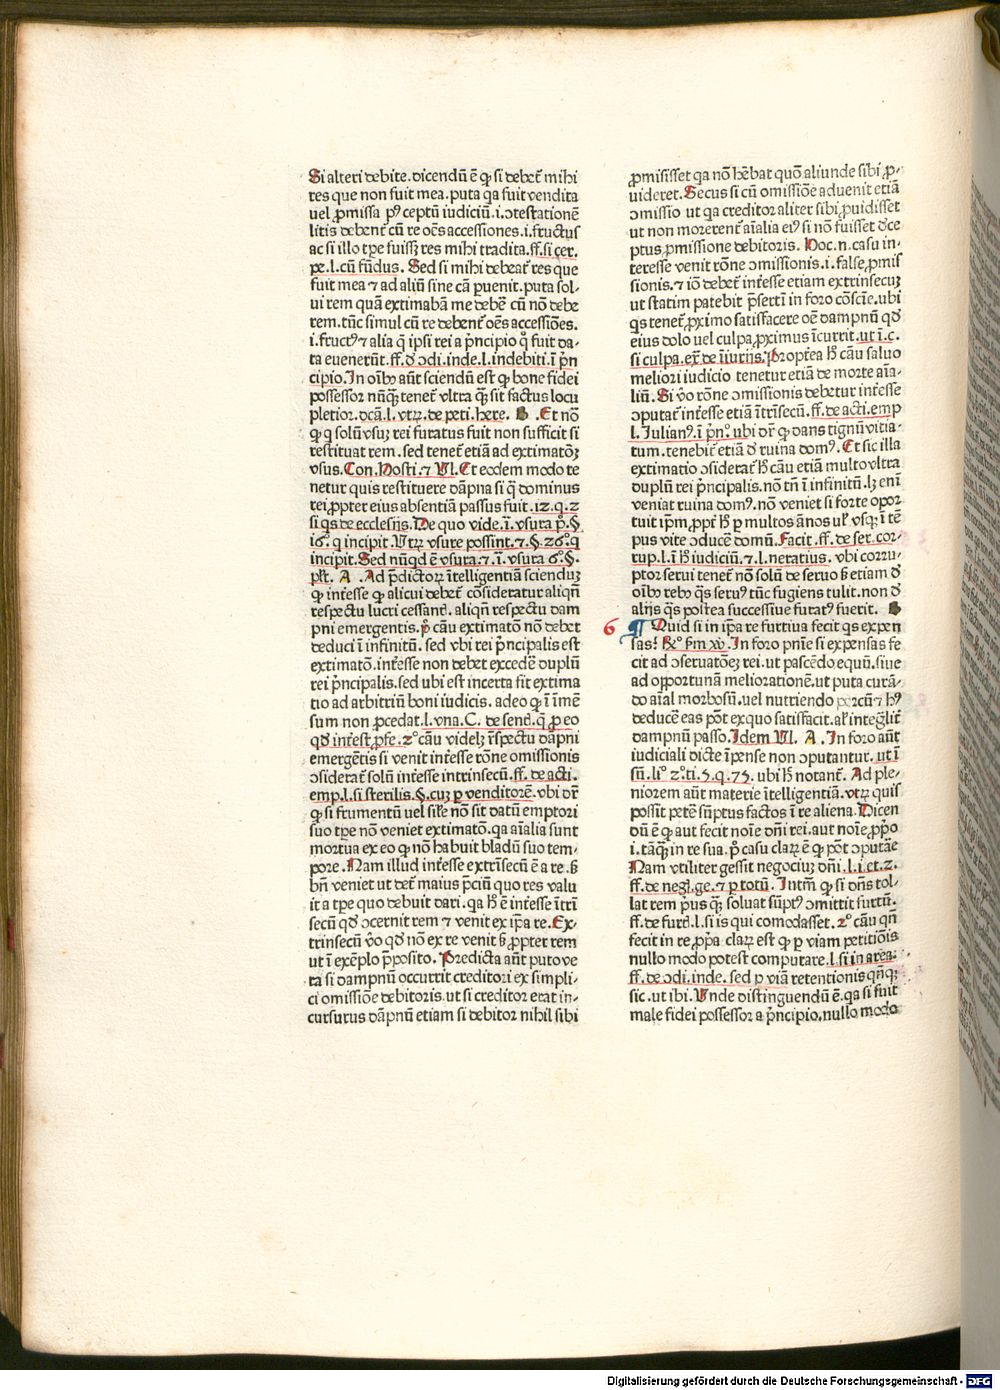 Si alteri debite.dicendū ē ꝙ si debet᷑ mihi
res que non fuit mea.puta qa fuit vendita
uel ꝓmissa pꝰ ceptū iudiciū.i.ↄtestationē
litis debent᷑ cū re oēs accessiones.i.fructus
ac si illo tꝑe fuissꝫ res mihi tradita.ff.si cer.
pe.l.cū fūdus. Sed si mihi debeat᷑ res que
fuit mea ⁊ ad aliū sine cā ꝑuenit.puta sol-
ui rem quā extimabā me debē cū nō debe
rem.tūc simul cū re debent᷑ oēs accessiōes.
i.fructꝰ ⁊ alia q̄ ipsi rei a pͥncipio qͦ fuit da-
ta euenerūt.ff.ď ↄdi.inde.l.indebiti.ī pͥn
cipio.In oībꝰ aūt sciendū est ꝙ bone fidei
possessor nūꝙ tenet᷑ vltra ꝙ sit factus locu
pletior.dcā.l.vtꝝ.de peti.here. B .Et nō
ꝙ q solū vsuꝫ rei furatus fuit non sufficit si
restituat rem.sed tenet᷑ etiā ad extimatōꝫ
vsus.Con.Hosti.⁊ Vl.Et eodem modo te
netur quis restituere dāpna si q̄ dominus
rei ꝓpter eius absentiā passus fuit.12.q.2
si qs de ecclesijs.De quo vide.ī.vsura pͦ.§
16ͦ.q incipit.Vtꝝ vsure possint.⁊.§.26ͦ.q
incipit.Sed nūqd ē vsura.⁊.ī.vsura 6ͦ.§.
pͥlt᷑. A .Ad p̄dictoꝝ ītelligentiā sciendū
ꝙ int᷑esse ꝙ alicui debet᷑ cōsideratur aliqn̄
respectu lucri cessant᷑.aliqn̄ respectu dam
pni emergentis.pͦ cāu extimatō nō debet
deduci ī infinitū. sed vbi rei pͥncipalis est
extimatō.int᷑esse non debet excedē duplū
rei pͥncipalis.sed ubi est incerta fit extima
tio ad arbitriū boni iudicis. adeo ꝙ ī īmē
sum non ꝓcedat.l.vna.C. de sent᷑.q̄ ꝓ eo
qď int᷑est ꝓfe.2ͦ cāu videlꝫ r̄spectu dāpni
emergētis si venit int᷑esse rōne omissionis
ↄsiderat᷑ solū int᷑esse intrinsecū.ff.de acti.
emp.l.si sterilis.§.cuꝫ ꝑ venditorē.vbi dr̄
ꝙ si frumentū uel sil᷑e nō sit datū emptori
suo tꝑe nō veniet extimatō.qa aīalia sunt
mortua ex eo ꝙ nō habuit bladū suo tem-
pore.Nam illud int᷑esse extrīsecū ē a re.ẞ
bn̄ veniet ut det᷑ maius p̄ciū quo res valu
it a tꝑe quo debuit dari.qa h̄ ē int᷑esse ītrī
secū qď ↄcernit rem ⁊ venit ex ip̄a re.Ex-
trinsecū v̊o qď nō ex re venit ẞ ꝓpter rem
ut ī exēplo p̄posito.Predicta aūt puto ve
ra si dampnū occurrit creditori ex simpli-
ci omissiōe debitoris.ut si creditor erat in-
cursurus dāpnū etiam si debitor nihil sibi
ꝓmisisset qa nō hēbat quō aliunde sibi ꝓ-
uideret.Secus si cū omissiōe aduenit etiā
ↄmissio ut qa creditor aliter sibi ꝓuidisset
ut non morerent᷑ aīalia eiꝰ si nō fuisset ďce
ptus ꝓmissione debitoris. Hoc.n.casu in-
teresse venit rōne ↄmissionis.i.false ꝓmis
sionis.⁊ iō debet᷑ int᷑esse etiam extrinsecuꝫ
ut statim patebit p̄sertī in foro cōscīe.ubi
qs tenet᷑ ꝓximo satisfacere oē dampnū qď
eius dolo uel culpa ꝓximus īcurrit.ut ī.c.
si culpa.ex̄.de īiurijs.Proptrēa h̄ cāu saluo
meliori iudicio tenetur etiā de morte aīa-
liū. Si v̊o rōne ↄmissionis debetur int᷑esse
ↄputat᷑ int᷑esse etiā ītrīsecū.ff.de acti.emp
l.Julianꝰ.ī pͥnͦ.ubi dr̄ ꝙ dans tignū vitia-
tum.tenebit᷑ etiā ď ruina domꝰ.Et sic illa
extimatio ↄsiderat᷑ h̄ cāu etiā multo vltra
duplū rei pͥncipalis.nō tn̄ ī infinitū.lꝫ enī
veniat ruina domꝰ.nō veniet si forte opor
tuit ip̄m ꝓpt᷑ h̄ ꝑ multos ānos ul᷑ vsqꝫ ī tē
pus vite ↄducē domū.Facit.ff.de ser.cor-
rup.l.i h̄ iudiciū.⁊.l.neratius. vbi corru-
ptor serui tenet᷑ nō solū de seruo ẞ etiam ď
oībꝰ rebꝰ q̄s seruꝰ tūc fugiens tulit.non ď
alijs q̄s postea successiue furatꝰ fuerit. B
6 ¶ Quid si in ip̄a re furtiua fecit qs expen
sas? Rͦ ẞm xō.In foro pn̄ie si expensas fe
cit ad ↄseruatōeꝫ rei.ut pascēdo equū.siue
ad opportunā meliorationē.ut puta curā-
do aīal morbosū.uel nutriendo porcū ⁊ hꝰ
deducē eas pōt ex quo satisfacit.al᷑ integͥlit᷑
dampnū passo.Idem Vl. A .In foro aūt
iudiciali dicte īpense non ↄputantur.ut ī
sū.liͦ 2ͦ.ti.5.q.75. ubi h̄ notant᷑. Ad ple-
niorem aūt materie ītelligentiā.vtꝝ quis
possit petē sūptus factos ī re aliena.Dicen
dū ē ꝙ aut fecit noīe dn̄i rei.aut noīe ꝓpͥo
i.tāꝙ in re sua.pͦ casu claꝝ ē ꝙ pōt ↄputāe
Nam vtiliter gessit negociuꝫ dn̄i.l.i.et.2.
ff.de negͦ.ge.⁊ ꝑ totū. Intm̄ ꝙ si dn̄s tol-
lat rem pͥus ꝙ soluat sūptꝰ ↄmittit furtū.
ff.de furt᷑.l.si is qui comodasset.2ͦ cāu qn̄
fecit in re ꝓpͥa claꝝ est ꝙ ꝑ viam petitiōis
nullo modo potest computare.l.si in area.
ff.de ↄdi.inde. sed ꝑ viā retentionis qn̄qꝫ
sic.ut ibi.Vnde distinguendū ē.qa si fuit
male fidei possessor a pͥncipio.nullo modo
Digitalisierung gefördert durch die Deutsche Forschungsgemeinschaft - DFG